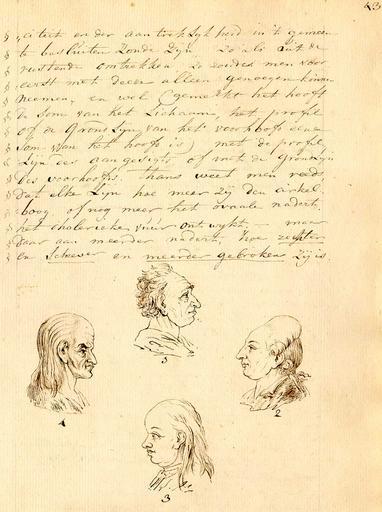 43
citeit en der aantreklykheid in 't gemeen
te besluiten Zonde Zyn. zo als uit de
rustende omtrekken. Zo zoude men voor
eerst met deeze alleen genoegen kunnen
neemen, en wel (gemerkt het hooft
de Som van het Lichaam, het profil
of de Grons Lyn van het voorhooft eene
Som van het hooft is) met de profil
Lyn des aangesigts, of met de Grons Lyn
des voorhoofts. thans weet men reeds,
dat elke Lyn hoe meer zij den cirkel
boog, of nog meer het ovaale nadert,
het cholerieke vuur ontwykt — maar
daar aan meerder nadert, hoe
en Scheever en meerder gebroken Zij is
5
1
2
3